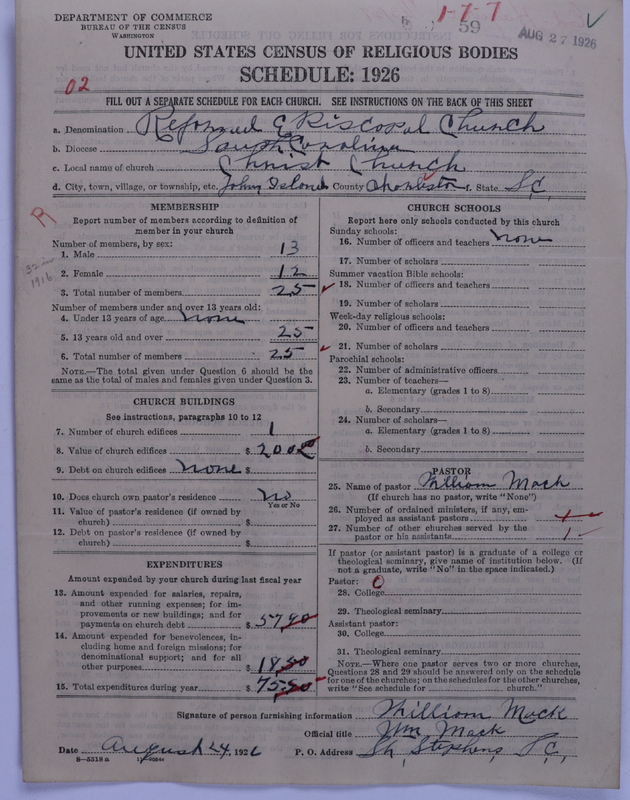 DEPARTMENT OF COMMERCE
BUREAU OF THE CENSUS
WASHINGTON
1-7-7
59
AUG 27 1926
UNITED STATES CENSUS OF RELIGIOUS BODIES
SCHEDULE: 1926
02
FILL OUT A SEPARATE SCHEDULE FOR EACH CHURCH. SEE INSTRUCTIONS ON THE BACK OF THIS SHEET
a. Denomination Reformed Episcopal Church
b. Diocese South Carolina
c. Local name of church Christ Church
d. City, town, village, or township, etc. Johns Island County Charleston f. State S.C.
R
32 in 1916
MEMBERSHIP
Report number of members according to definition of
member in your church
Number of members, by sex:
1. Male 13
2. Female 12
3. Total number of members 25
Number of members under and over 13 years old:
4. Under 13 years of age none
5. 13 years old and over 25
6. Total number of members 25
NOTE.—The total given under Question 6 should be the
same as the total of males and females given under Question 3.
CHURCH BUILDINGS
See instructions, paragraphs 10 to 12
7. Number of church edifices 1
8. Value of church edifices $ 200
9. Debt on church edifices none $
10. Does church own pastor's residence no
Yes or No
11. Value of pastor's residence (if owned by
church) $
12. Debt on pastor's residence (if owned by
church) $
EXPENDITURES
Amount expended by your church during last fiscal year
13. Amount expended for salaries, repairs,
and other running expenses; for im-
provements or new buildings; and for
payments on church debt $ 57
14. Amount expended for benevolences, in-
cluding home and foreign missions; for
denominational support; and for all
other purposes $ 18.50
15. Total expenditures during year $ 75.50
CHURCH SCHOOLS
Report here only schools conducted by this church
Sunday schools:
16. Number of officers and teachers none
17. Number of scholars
Summer vacation Bible schools:
18. Number of officers and teachers
19. Number of scholars
Week-day religious schools:
20. Number of officers and teachers
21. Number of scholars
Parochial schools:
22. Number of administrative officers
23. Number of teachers—
a. Elementary (grades 1 to 8)
b. Secondary
24. Number of scholars—
a. Elementary (grades 1 to 8)
b. Secondary
PASTOR
25. Name of pastor William Mack
(If church has no pastor, write "None")
26. Number of ordained ministers, if any, em-
ployed as assistant pastors
27. Number of other churches served by the
pastor or his assistants 1
If pastor (or assistant pastor) is a graduate of a college or
theological seminary, give name of institution below. (If
not a graduate, write "No" in the space indicated.)
Pastor: 0
28. College
29. Theological seminary
Assistant pastor:
30. College
31. Theological seminary
NOTE.—Where one pastor serves two or more churches,
Questions 28 and 29 should be answered only on the schedule
for one of the churches; on the schedules for the other churches,
write "See schedule for church."
Signature of person furnishing information William Mack
Official title Wm Mack
Date August 24, 1926 P. O. Address St. Stephens S.C.
8—5518 a